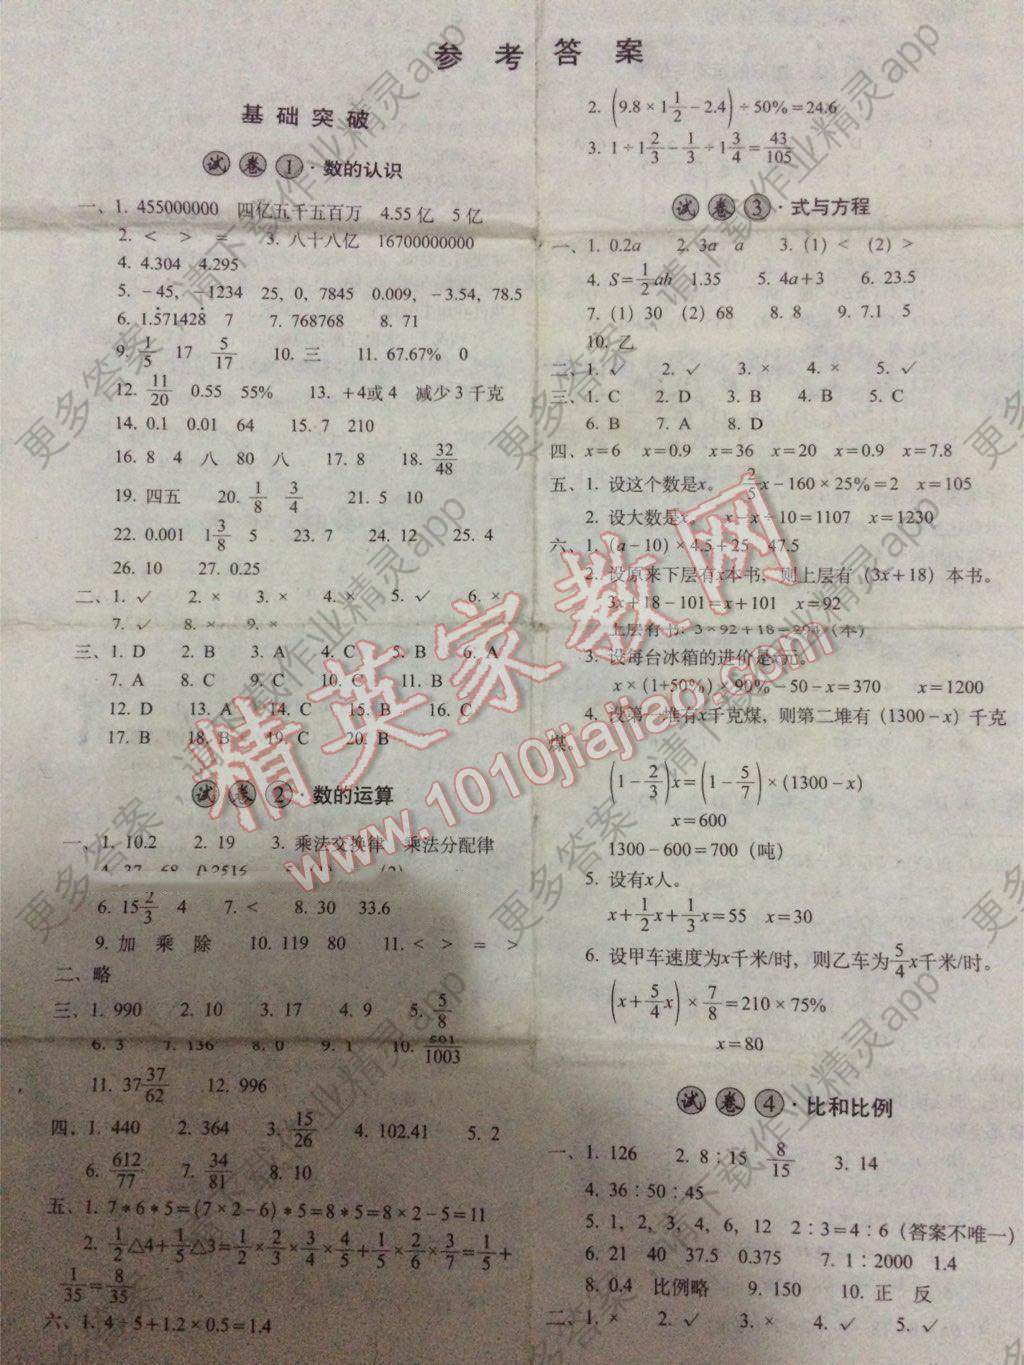 参考答案
基础突破
试卷1·数的认识
一、1. 455000000 四亿五千五百万 4.55 亿 5 亿
2. < > = 3. 八十八亿 16700000000
4. 4.304 4.295
5. －45, －1234 25, 0, 7845 0.009, －3.54, 78.5
6. 1.5̇71428̇ 7 7. 768768 8. 71
9. 1/5 17 5/17 10. 三 11. 67.67% 0
12. 11/20 0.55 55% 13. ＋4或 4 减少 3 千克
14. 0.1 0.01 64 15. 7 210
16. 8 4 八 80 八 17. 8 18. 32/48
19. 四五 20. 1/8 3/4 21. 5 10
22. 0.001 1 3/8 5 23. 7 24. 12 25. 4
26. 10 27. 0.25
二、1. ✓ 2. × 3. × 4. × 5. ✓ 6. ×
7. ✓ 8. × 9. ×
三、1. D 2. B 3. A 4. C 5. B 6. A
7. A 8. C 9. C 10. C 11. B
12. D 13. A 14. C 15. B 16. C
17. B 18. B 19. C 20. B
试卷2·数的运算
一、1. 10.2 2. 19 3. 乘法交换律 乘法分配律
6. 15 2/3 4 7. < 8. 30 33.6
9. 加 乘 除 10. 119 80 11. < > = >
二、略
三、1. 990 2. 10 3. 17 4. 9 5. 5/8
6. 3 7. 136 8. 0 9. 1 10. 501/1003
11. 37 37/62 12. 996
四、1. 440 2. 364 3. 15/26 4. 102.41 5. 2
6. 612/77 7. 34/81 8. 10
五、1. 7＊6＊5＝(7×2－6)＊5＝8＊5＝8×2－5＝11
2. 1/2△4＋1/5△3＝1/2×2/3×3/4×4/5＋1/5×2/6×3/7＝1/5＋
1/35＝8/35
六、1. 4÷5＋1.2×0.5＝1.4
2. (9.8×1 1/2－2.4)÷50%＝24.6
3. 1÷1 2/3－1/3÷1 3/4＝43/105
试卷3·式与方程
一、1. 0.2a 2. 3a a 3. (1) < (2) >
4. S＝1/2ah 1.35 5. 4a＋3 6. 23.5
7. (1) 30 (2) 68 8. 8 9. 7.1 5
10. 乙
二、1. ✓ 2. ✓ 3. × 4. × 5. ✓
三、1. C 2. D 3. B 4. B 5. C
6. B 7. A 8. D
四、x＝6 x＝0.9 x＝36 x＝20 x＝0.9 x＝7.8
五、1. 设这个数是x。 2/5x－160×25%＝2 x＝105
2. 设大数是x。 x－x÷10＝1107 x＝1230
六、1. (a－10)×4.5＋25 47.5
2. 设原来下层有x本书，则上层有（3x＋18）本书。
3x＋18－101＝x＋101 x＝92
上层有书：3×92＋18＝294（本）
3. 设每台冰箱的进价是x元。
x×(1+50%)×90%－50－x＝370 x＝1200
4. 设第一堆有x千克煤，则第二堆有（1300－x）千克
煤。
(1－2/3)x＝(1－5/7)×(1300－x)
x＝600
1300－600＝700（吨）
5. 设有x人。
x＋1/2x＋1/3x＝55 x＝30
6. 设甲车速度为x千米/时，则乙车为5/4x千米/时。
(x＋5/4x)×7/8＝210×75%
x＝80
试卷4·比和比例
一、1. 126 2. 8∶15 8/15 3. 14
4. 36∶50∶45
5. 1, 2, 3, 4, 6, 12 2∶3＝4∶6（答案不唯一）
6. 21 40 37.5 0.375 7. 1∶2000 1.4
8. 0.4 比例略 9. 150 10. 正 反
二、1. × 2. ✓ 3. × 4. ✓ 5. ✓
精英家教网
www.1010jiajiao.com
更多答案，请下载作业精灵app